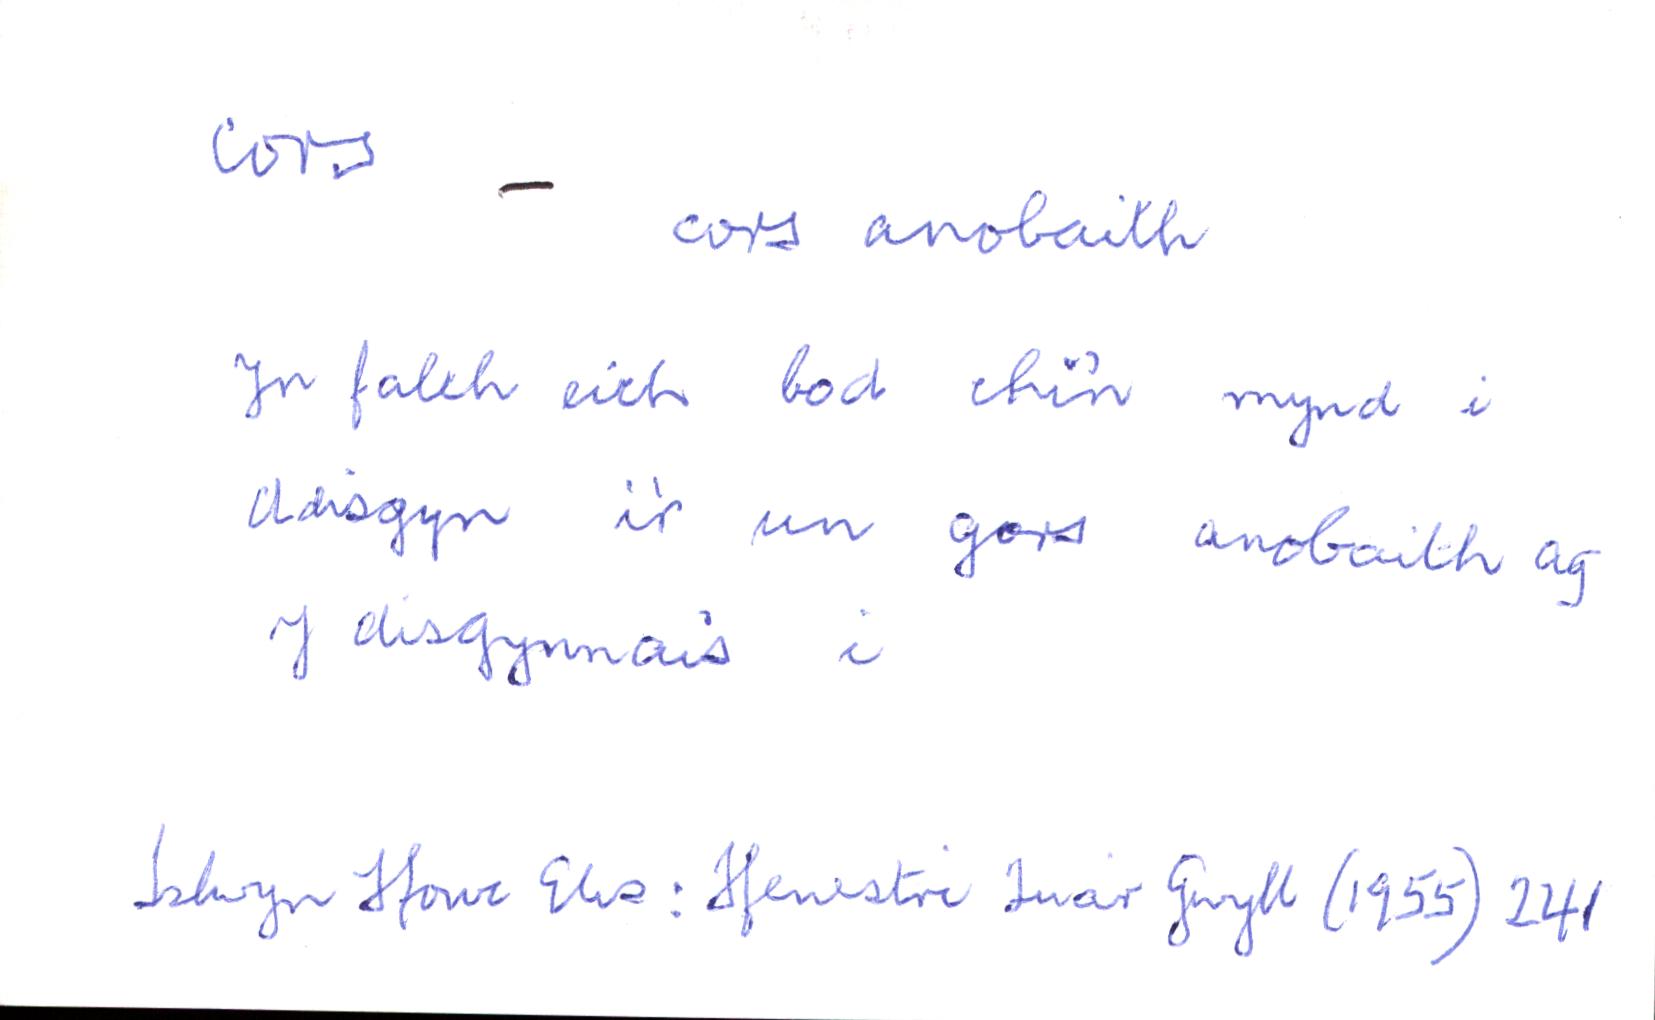 Cors –
cors anobaith
Yn falch eich bod chi'n mynd i
ddisgyn i'r un gors anobaith ag
y disgynnais i
Islwyn Ffowc Elis: Ffenestri Tua'r Gwyll (1955) 241